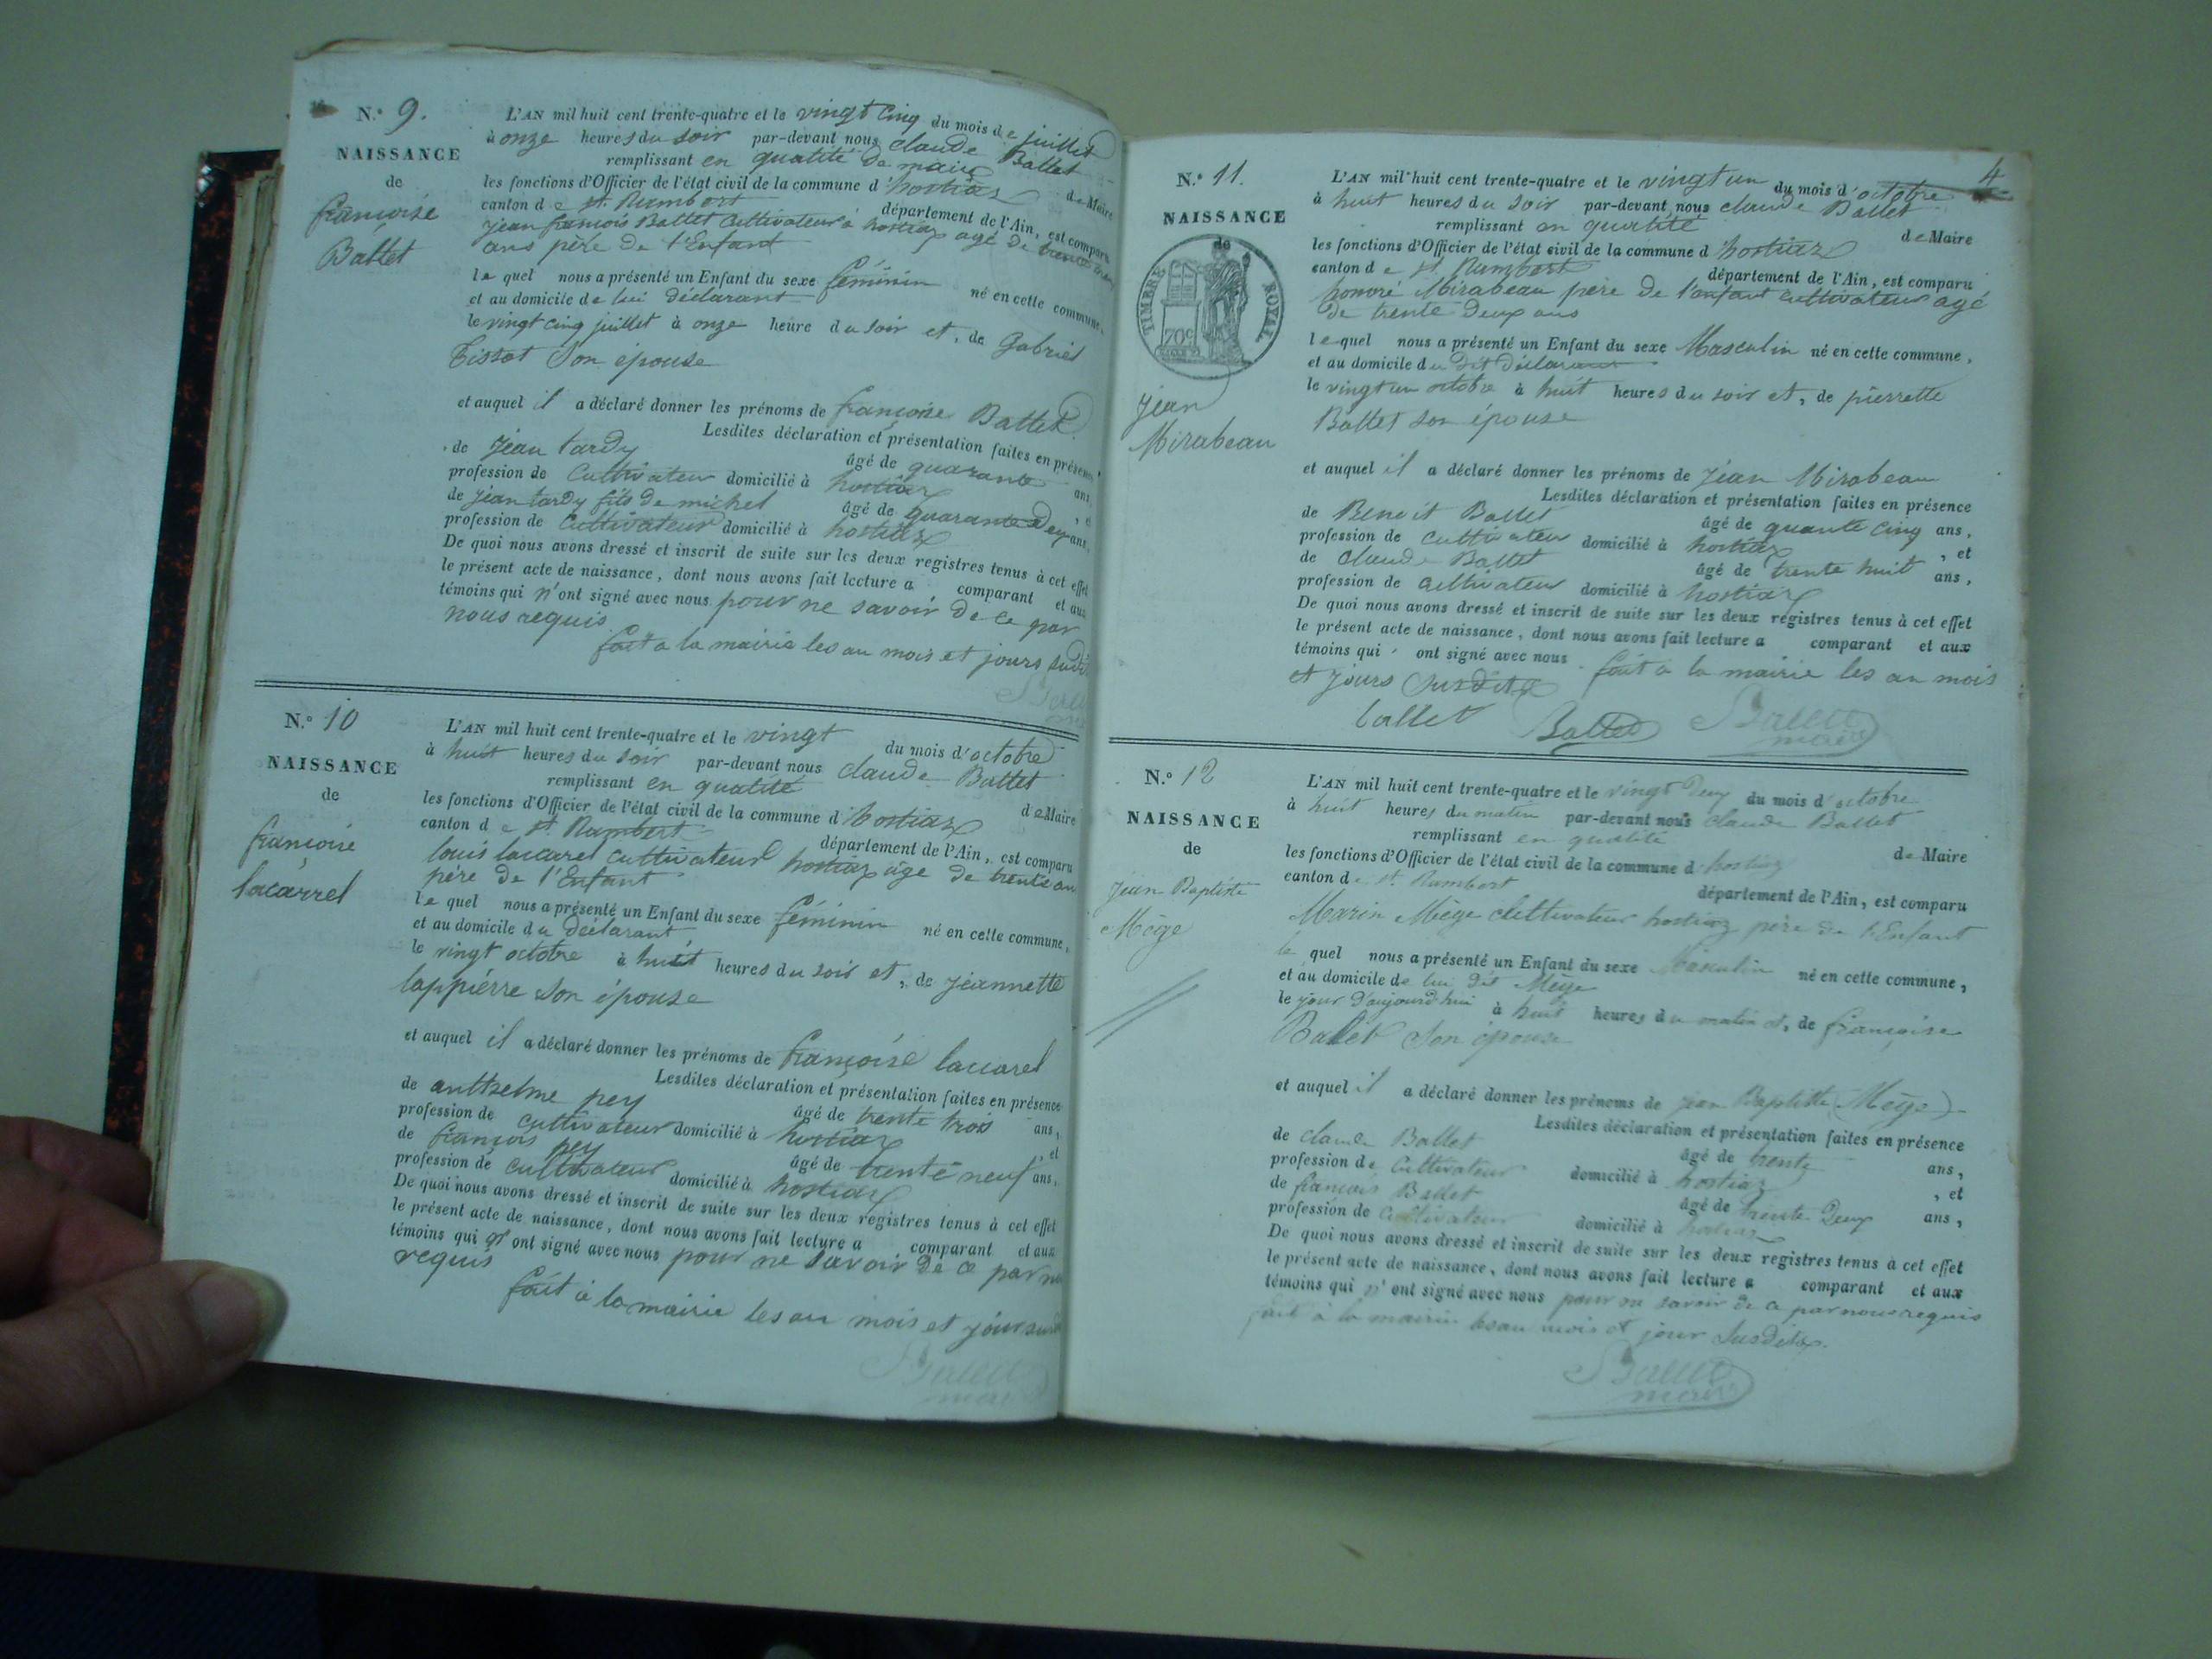 N.° 9.
NAISSANCE
de
françoise
Ballet
L'AN mil huit cent trente-quatre et le vingt cinq du mois de juillet
à onze heures du soir par-devant nous claude Ballet
remplissant en qualité de maire de Maire
les fonctions d'Officier de l'état civil de la commune d'hostiaz
canton de st. Rambert département de l'Ain, est comparu
jean françois Ballet Cultivateur à hostiaz agé de trente
ans père de l'Enfant
lequel nous a présenté un Enfant du sexe féminin né en cette commune,
et au domicile de lui déclarant
le vingt cinq juillet à onze heure du soir et, de Gabriel
Tissot Son épouse
et auquel il a déclaré donner les prénoms de françoise Ballet
Lesdites déclaration et présentation faites en présence
de jean tardy âgé de quarante ans
profession de Cultivateur domicilié à hostiaz , et
de jean tardy fils de michel âgé de quarante Deux ans,
profession de Cultivateur domicilié à hostiaz
De quoi nous avons dressé et inscrit de suite sur les deux registres tenus à cet effet
le présent acte de naissance, dont nous avons fait lecture a comparant et aux
témoins qui n'ont signé avec nous pour ne savoir de ce par
nous requis
fait a la mairie les an mois et jours susdits
Ballet
maire
N.° 10
NAISSANCE
de
françoise
laccarrel
L'AN mil huit cent trente-quatre et le vingt du mois d'octobre
à huit heures du soir par-devant nous claude Ballet
remplissant en qualité de Maire
les fonctions d'Officier de l'état civil de la commune d'hostiaz
canton de st. Rambert département de l'Ain, est comparu
louis laccarel cultivateur hostiaz âge de trente an
père de l'Enfant
lequel nous a présenté un Enfant du sexe féminin né en cette commune,
et au domicile du déclarant
le vingt octobre à huit heures du soir et, de jeannette
lappiérre son épouse
et auquel il a déclaré donner les prénoms de françoise laccarel
Lesdites déclaration et présentation faites en présence
de anthelme pey âgé de trente trois ans,
profession de cultivateur domicilié à hostiaz , et
de françois pey âgé de trente neuf ans,
profession de cultivateur domicilié à hostiaz
De quoi nous avons dressé et inscrit de suite sur les deux registres tenus à cet effet
le présent acte de naissance, dont nous avons fait lecture a comparant et aux
témoins qui n'ont signé avec nous pour ne savoir de ce par nous
requis
fait à la mairie les an mois et jour susdits
Ballet
maire
4
N.° 11.
NAISSANCE
de
TIMBRE ROYAL
70c
jean
Mirabeau
L'AN mil huit cent trente-quatre et le vingt un du mois d'octobre
à huit heures du soir par-devant nous claude Ballet
remplissant en qualité de Maire
les fonctions d'Officier de l'état civil de la commune d hostiaz
canton de st. Rambert département de l'Ain, est comparu
honoré Mirabeau père de l'enfant cultivateur agé
de trente deux ans
lequel nous a présenté un Enfant du sexe Masculin né en cette commune,
et au domicile du Dit déclarant
le vingt un octobre à huit heures du soir et, de pierrette
Ballet son épouse
et auquel il a déclaré donner les prénoms de jean Mirabeau
Lesdites déclaration et présentation faites en présence
de Benoit Ballet âgé de quante cinq ans,
profession de cultivateur domicilié à hostiaz , et
de claude Ballet âgé de trente huit ans,
profession de cultivateur domicilié à hostiaz
De quoi nous avons dressé et inscrit de suite sur les deux registres tenus à cet effet
le présent acte de naissance, dont nous avons fait lecture a comparant et aux
témoins qui ont signé avec nous . fait à la mairie les an mois
et jours susdits
ballet Ballet Ballet
maire
N.° 12
NAISSANCE
de
jean Baptiste
Mège
L'AN mil huit cent trente-quatre et le vingt deux du mois d'octobre
à huit heures du matin par-devant nous claude Ballet
remplissant en qualité de Maire
les fonctions d'Officier de l'état civil de la commune d hostiaz
canton de st. Rambert département de l'Ain, est comparu
Marin Miège cultivateur hostiaz père de l'Enfant
le quel nous a présenté un Enfant du sexe Masculin né en cette commune,
et au domicile de lui dit Mège
le jour d'aujourd'hui à huit heures du matin et, de françoise
Ballet Son épouse
et auquel il a déclaré donner les prénoms de jean Baptiste (Mège)
Lesdites déclaration et présentation faites en présence
de claude Ballet âgé de trente ans,
profession de Cultivateur domicilié à hostiaz , et
de françois Ballet âgé de trente Deux ans,
profession de Cultivateur domicilié à hostiaz
De quoi nous avons dressé et inscrit de suite sur les deux registres tenus à cet effet
le présent acte de naissance, dont nous avons fait lecture a comparant et aux
témoins qui n'ont signé avec nous pour ne savoir de ce par nous requis
fait à la mairie les an mois et jour susdits.
Ballet
maire